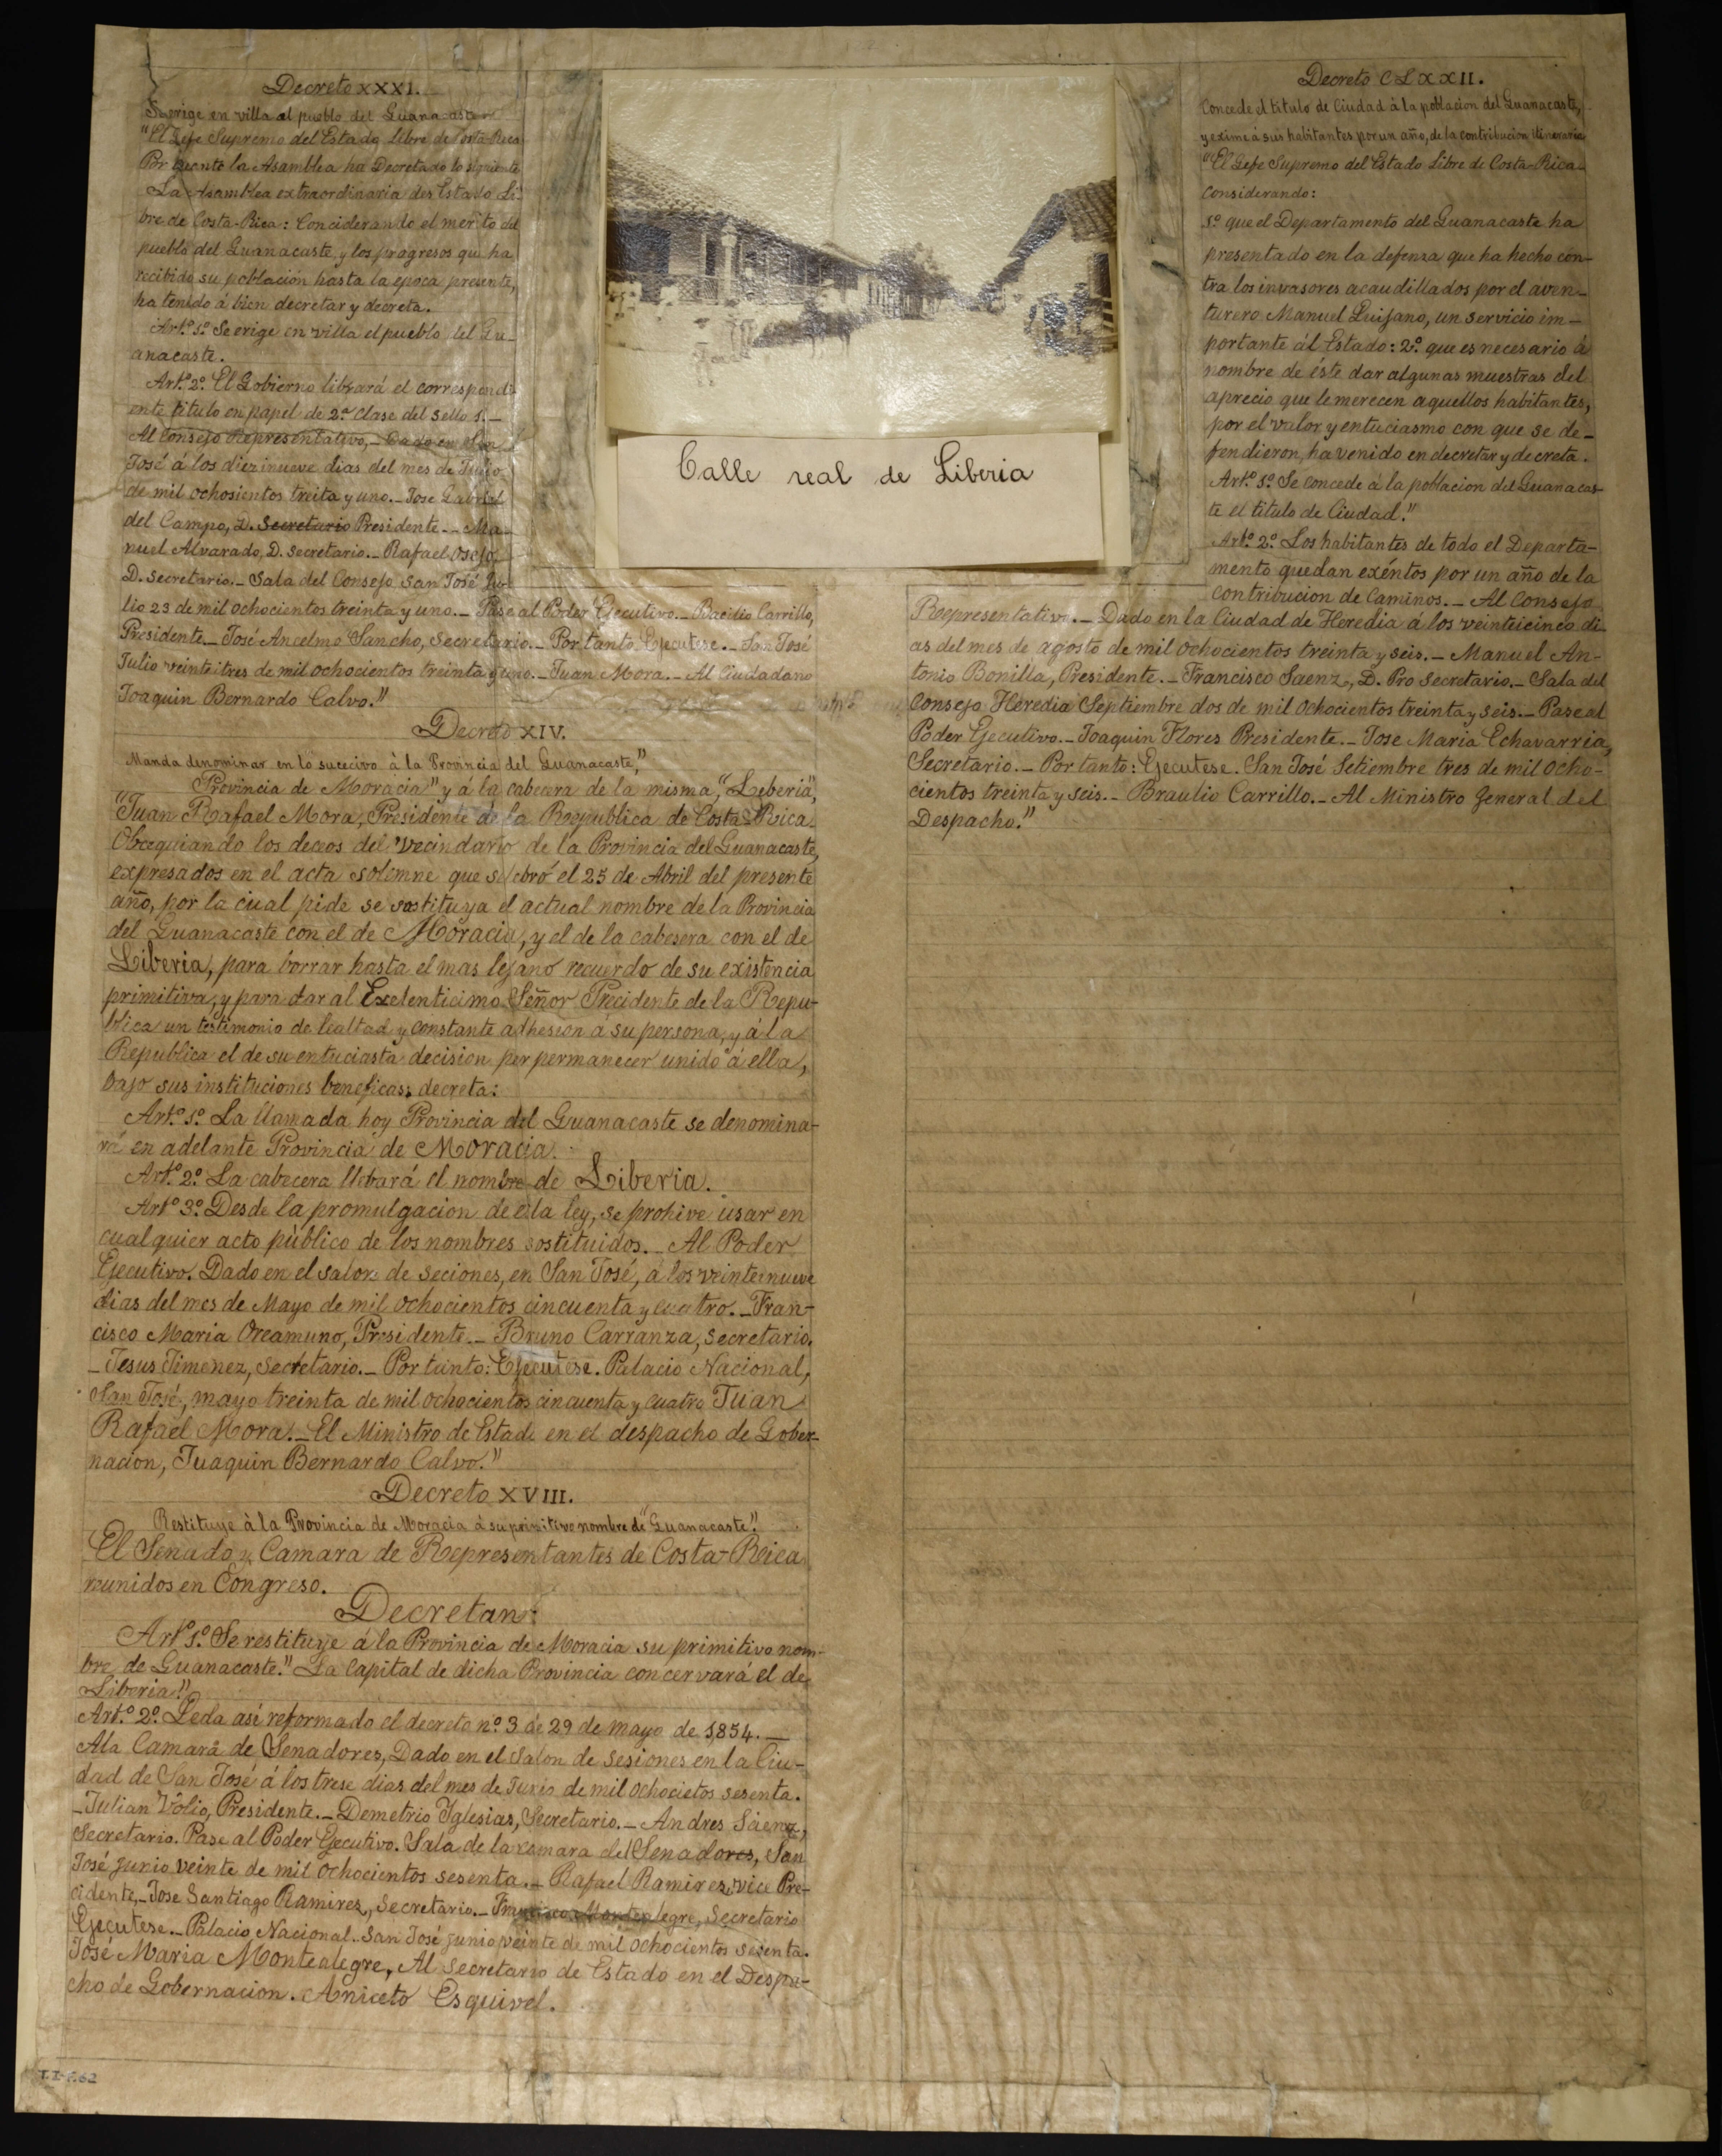 Decreto XXXI.
Se erige en villa al pueblo del Guanacaste
"El Gefe Supremo del Estado libre de Costa-Rica
Por cuanto la Asamblea ha Decretado lo siguiente
La Asamblea extraordinaria des Estado Li-
bre de Costa-Rica: Conciderando el merito del
pueblo del Guanacaste, y los progresos que ha
recibido su población hasta la epoca presente,
ha tenido á bien decretar y decreta.
Artº 1º Se erige en villa el pueblo del Gu-
anacaste.
Artº 2º El Gobierno librará el correspondi-
ente titulo en papel de 2ª clase del sello 1.–
Al Consejo Representativo,– Dado en San
José á los diezinueve dias del mes de Julio
de mil ochosientos treita y uno.– Jose Gabriel
del Campo, D. Secretario Presidente.– Ma-
nuel Alvarado, D. secretario.– Rafael Osejo,
D. secretario.– Sala del Consejo San José Ju-
lio 23 de mil ochocientos treinta y uno.– Pase al Poder Ejecutivo.– Bacilio Carrillo,
Presidente.– José Ancelmo Sancho, Secretario.– Por tanto Ejecutese.– San José
Julio veintitres de mil ochocientos treinta y uno.– Juan Mora.– Al Ciudadano
Joaquin Bernardo Calvo."
Decreto XIV.
Manda denominar en lo sucecivo à la Provincia del Guanacaste,"
Provincia de Moracia" y á la cabecera de la misma, "Liberia",
"Juan Rafael Mora, Presidente de la Republica de Costa-Rica.
Obcequiando los deceos del vecindario de la Provincia del Guanacaste,
expresados en el acta solemne que selebró el 25 de Abril del presente
año, por la cual pide se sostituya el actual nombre de la Provincia
del Guanacaste con el de Moracia, y el de la cabesera con el de
Liberia, para borrar hasta el mas lejano recuerdo de su existencia
primitiva, y para dar al Exelenticimo Señor Precidente de la Repu-
blica un testimonio de lealtad y constante adhesion á su persona, y á la
Republica el de su entuciasta decision por permanecer unido á ella,
bajo sus instituciones beneficas; decreta:
Artº 1º La llamada hoy Provincia del Guanacaste se denomina-
rá en adelante Provincia de Moracia.
Artº 2º La cabecera llebará el nombre de Liberia.
Artº 3º Desde la promulgacion de esta ley, se prohive usar en
cualquier acto pùblico de los nombres sostituidos.– Al Poder
Ejecutivo. Dado en el salon de seciones, en San José, á los veintenueve
dias del mes de Mayo de mil ochocientos cincuenta y cuatro.– Fran-
cisco Maria Oreamuno, Presidente.– Bruno Carranza, secretario.
– Jesus Jimenez, secretario.– Por tanto: Ejecutese. Palacio Nacional,
San José, mayo treinta de mil ochocientos cincuenta y cuatro Juan
Rafael Mora.– El Ministro de Estado en el despacho de Gober-
nacion, Juaquin Bernardo Calvo."
Decreto XVIII.
Restituye à la Provincia de Moracia á su primitivo nombre de "Guanacaste".
El Senado y Camara de Representantes de Costa-Rica
reunidos en Congreso.
Decretan:
Artº 1º Se restituye á la Provincia de Moracia su primitivo nom-
bre de Guanacaste." La Capital de dicha Provincia concervará el de
Liberia."
Artº 2º Queda asi reformado el decreto nº 3 de 29 de mayo de 1,854.–
Ala Camara de Senadores, Dado en el salon de sesiones en la Ciu-
dad de San José á los trese dias del mes de Junio de mil ochocietos sesenta.
– Julian Volio, Presidente.– Demetrio Yglesias, Secretario.– Andres Saenz,
Secretario. Pase al Poder Ejecutivo. Sala de la camara del Senadores, San
José junio veinte de mil ochocientos sesenta.– Rafael Ramirez, vice Pre-
cidente,– Jose Santiago Ramirez, Secretario.– Francisco Montealegre, Secretario
Ejecutese.– Palacio Nacional. San José junio veinte de mil ochocientos sesenta.
José Maria Montealegre, Al secretario de Estado en el Despa-
cho de Gobernacion. Aniceto Esquivel.
T.I-F.62
Calle real de Liberia
Decreto CLXXII.
Concede el titulo de Ciudad à la poblacion del Guanacaste,
y exime á sus habitantes por un año, de la contribucion itineraria
"El Gefe Supremo del Estado Libre de Costa-Rica
Considerando:
1º que el Departamento del Guanacaste ha
presentado en la defenza que ha hecho con-
tra los invasores acaudillados por el aven-
turero Manuel Quijano, un servicio im-
portante ál Estado: 2º que es necesario á
nombre de éste dar algunas muestras del
aprecio que le merecen aquellos habitantes,
por el valor y entuciasmo con que se de-
fendieron, ha venido en decretar y decreta.
Artº 1º Se concede á la poblacion del Guanacas-
te el titulo de Ciudad."
Artº 2º Los habitantes de todo el Departa-
mento quedan exéntos por un año de la
contribucion de Caminos.– Al Consejo
Representativo.– Dado en la Ciudad de Heredia á los veinticinco di-
as del mes de agosto de mil ochocientos treinta y seis.– Manuel An-
tonio Bonilla, Presidente.– Francisco Saenz, D. Pro secretario.– Sala del
Consejo Heredia Septiembre dos de mil ochocientos treinta y seis.– Pase al
Poder Ejecutivo.– Joaquin Flores Presidente.– Jose Maria Echavarria,
Secretario.– Por tanto: Ejecutese. San José Setiembre tres de mil ocho-
cientos treinta y seis.– Braulio Carrillo.– Al Ministro general del
Despacho."